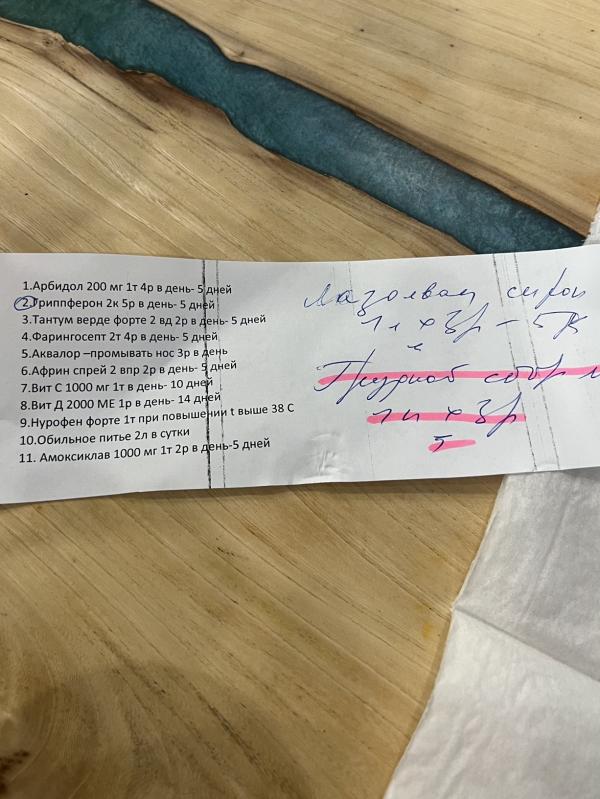 1.Арбидол 200 мг 1т 4р в день- 5 дней
2.Гриппферон 2к 5р в день- 5 дней
3.Тантум верде форте 2 вд 2р в день- 5 дней
4.Фарингосепт 2т 4р в день- 5 дней
5.Аквалор –промывать нос 3р в день
6.Африн спрей 2 впр 2р в день- 5 дней
7.Вит С 1000 мг 1т в день- 10 дней
8.Вит Д 2000 МЕ 1р в день- 14 дней
9.Нурофен форте 1т при повышении t выше 38 С
10.Обильное питье 2л в сутки
11. Амоксиклав 1000 мг 1т 2р в день-5 дней
Лазолван сироп
1л х 3р – 5
Грудной сбор
х 3р